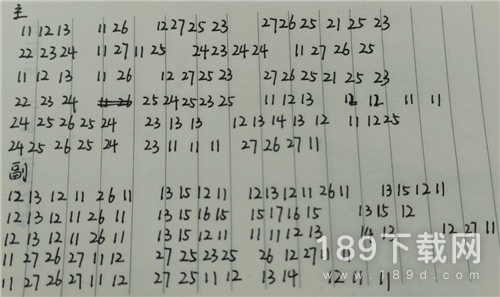 主
11 12 13 11 26 12 27 25 23 27 26 25 21 25 23
22 23 24 11 27 11 25 24 23 24 24 11 27 26 25
11 12 13 11 26 12 27 25 23 27 26 25 21 25 23
22 23 24 11 26 25 24 25 23 25 11 12 13 12 12 11 11
24 25 26 25 24 23 13 13 12 13 14 13 12 11 12 25
24 25 26 25 24 23 11 11 11 27 26 27 11
副
12 13 12 11 26 11 13 15 12 11 12 13 12 11 26 11 13 15 12 11
12 13 12 11 26 11 13 15 16 15 15 17 16 15 13 15 12
12 13 12 11 26 11 13 15 12 11 11 11 12 13 14 13 12 27 11
11 27 26 27 11 12 27 25 23 25 26 12 27 11 11
11 27 26 27 11 12 27 25 11 12 13 14 12 11 11
189下载网
www.189d.com